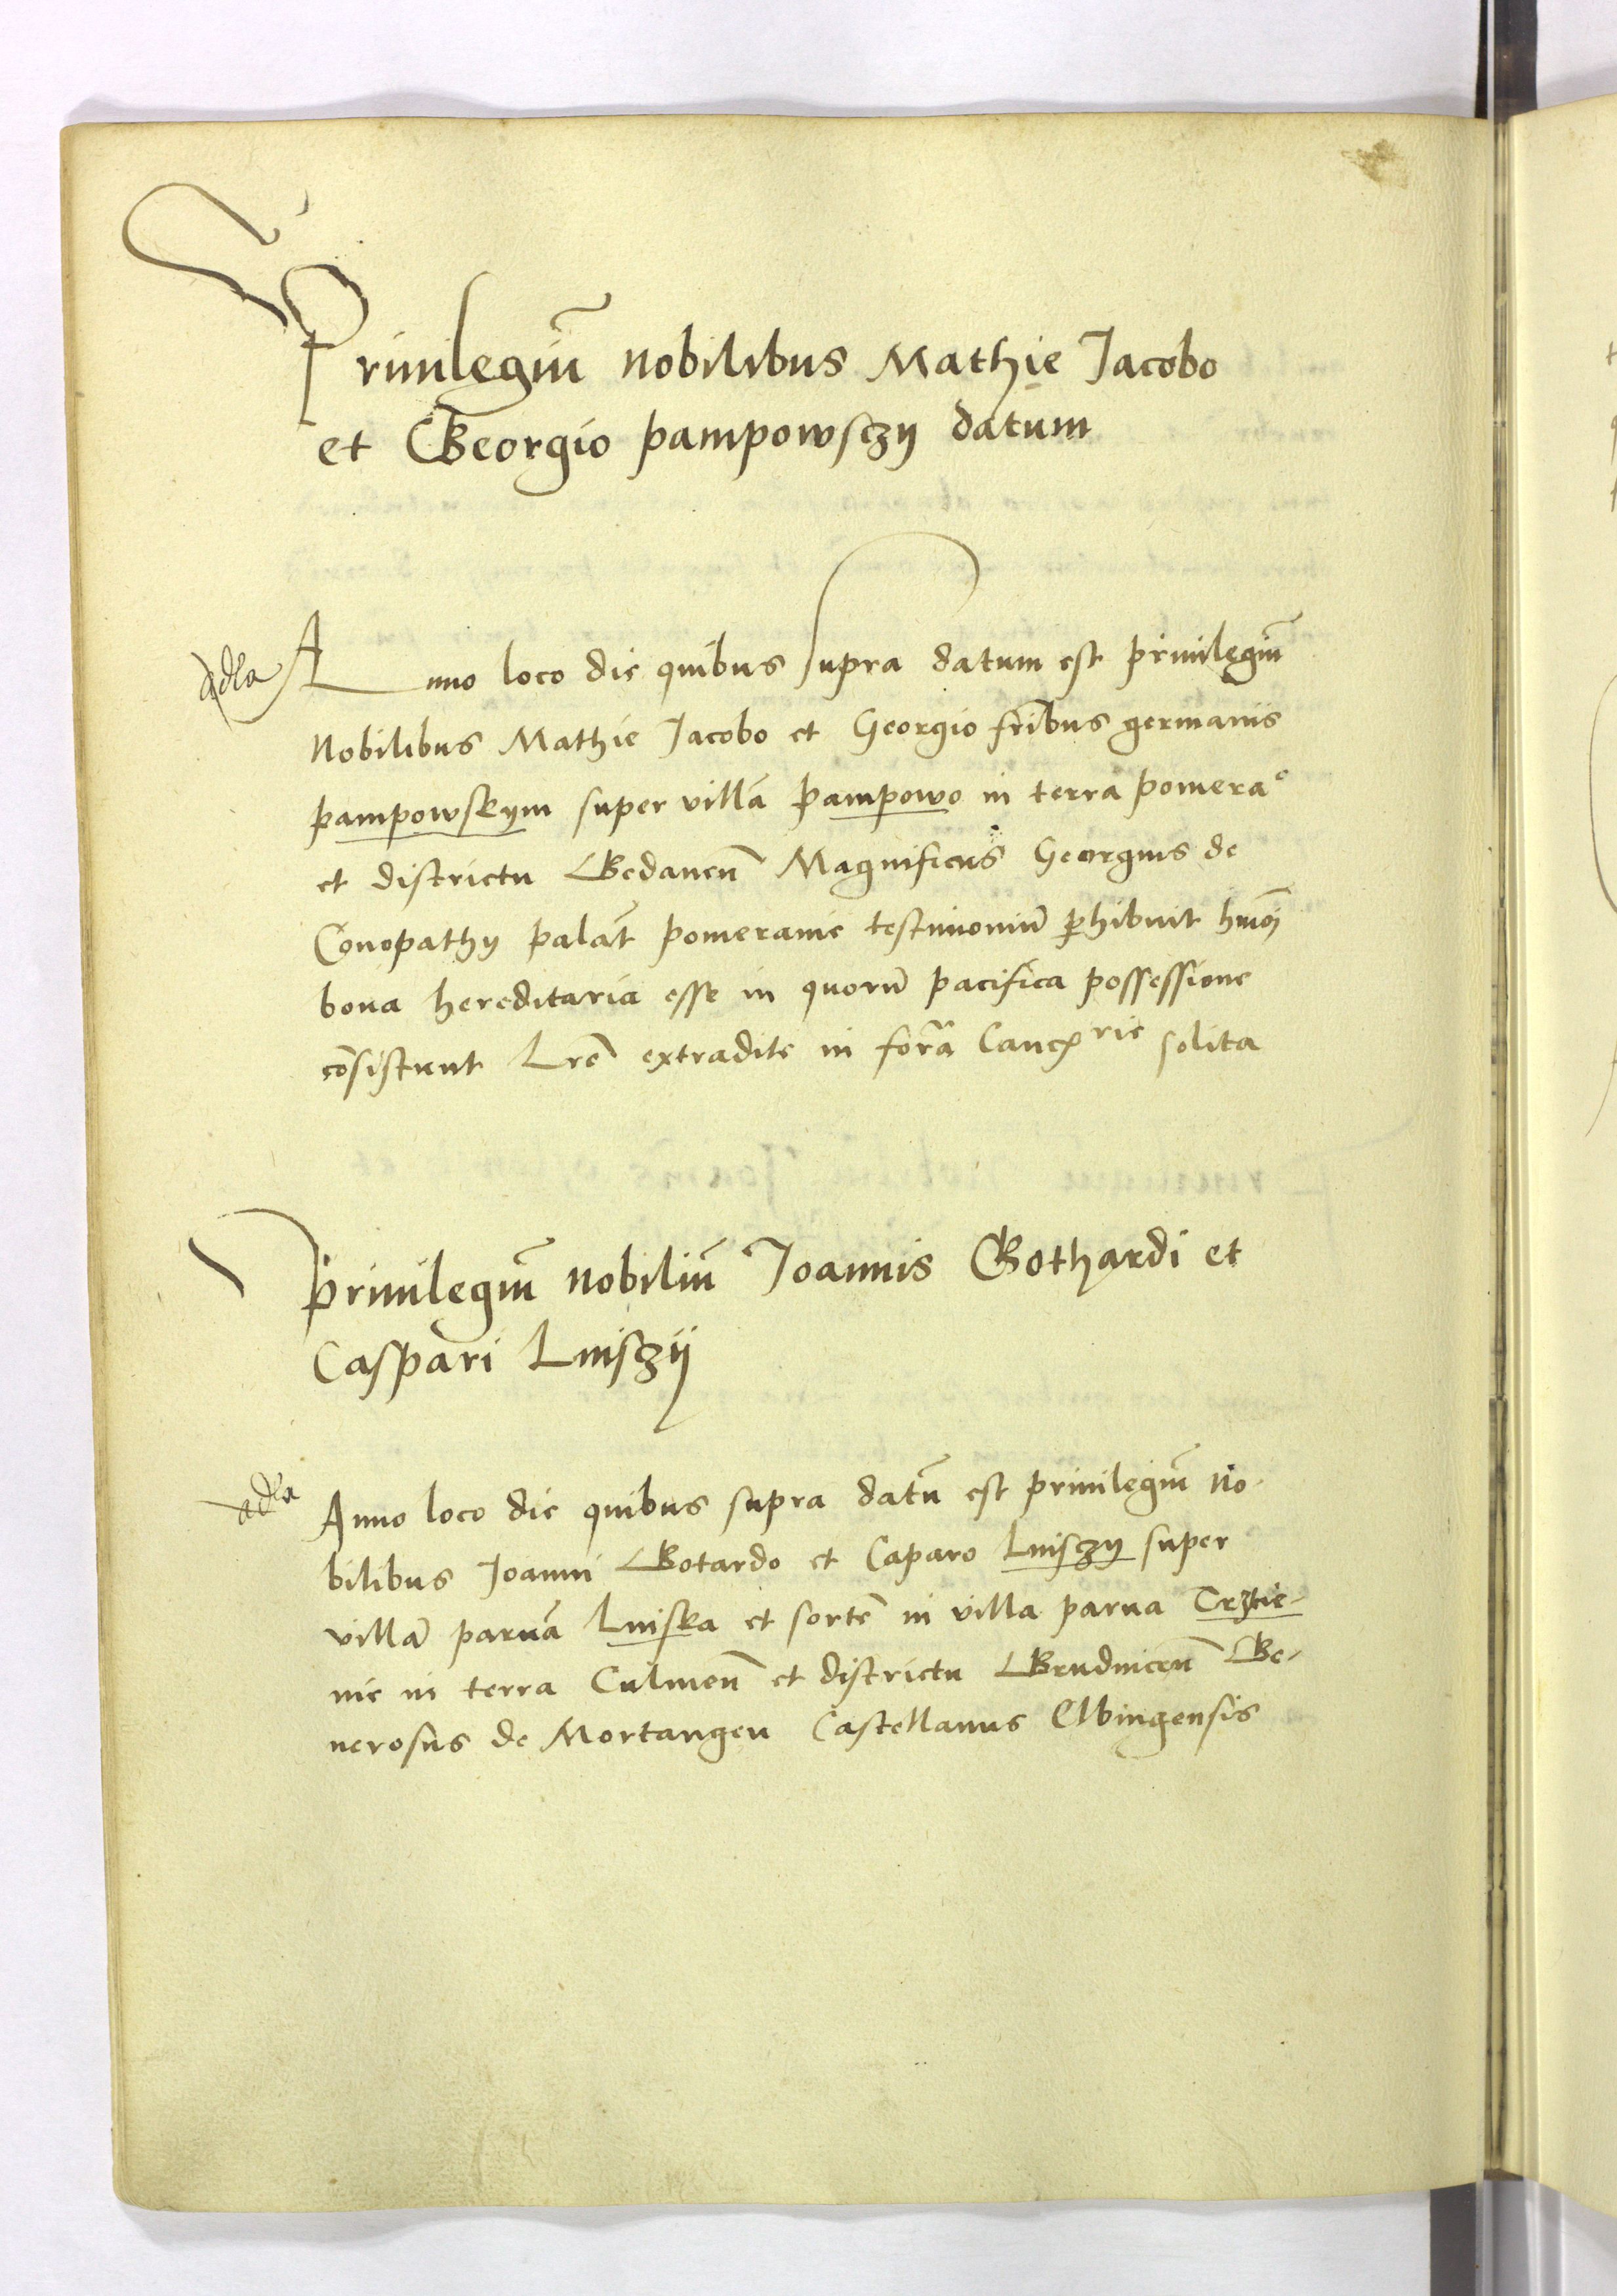 Priuilegiũ nobilibus Mathie Jacobo
et Georgio pampowsczy datum
Anno loco die quibus supra datum est priuilegiũ
Nobilibus Mathie Jacobo et Georgio fribus germanis
pampowskym super villã pampowo in terra pomera
et districtu Gedaneñ Magnificus Georgius de
Conopathy palat̃ pomeranie testimoniũ phibuit hmõi
bona hereditaria esse in quorũ pacifica possessione
cõsistunt Lrẽ extradite in forã Cancrie solita
priuilegiũ nobiliũ Joannis Gothardi et
Caspari Lnisczij
adla Anno loco die quibus supra datũ est priuilegiũ no-
bilibus Joanni Gotardo et Caparo Lnisczy super
villã paruã Lniska et sortẽ in villa parua Trztie-
nie in terra Culmeñ et districtu Brudniceñ Ge-
nerosus de Mortangen Castellanus Elbingensis